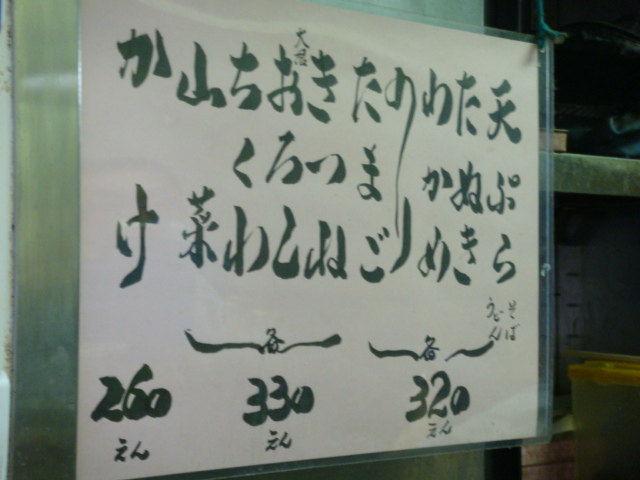 天ぷら
そば
うどん
たぬき
わかめ
のり
たまご
各
320
えん
きつね
おろし
ちくわ
山菜
各
330
えん
かけ
260
えん